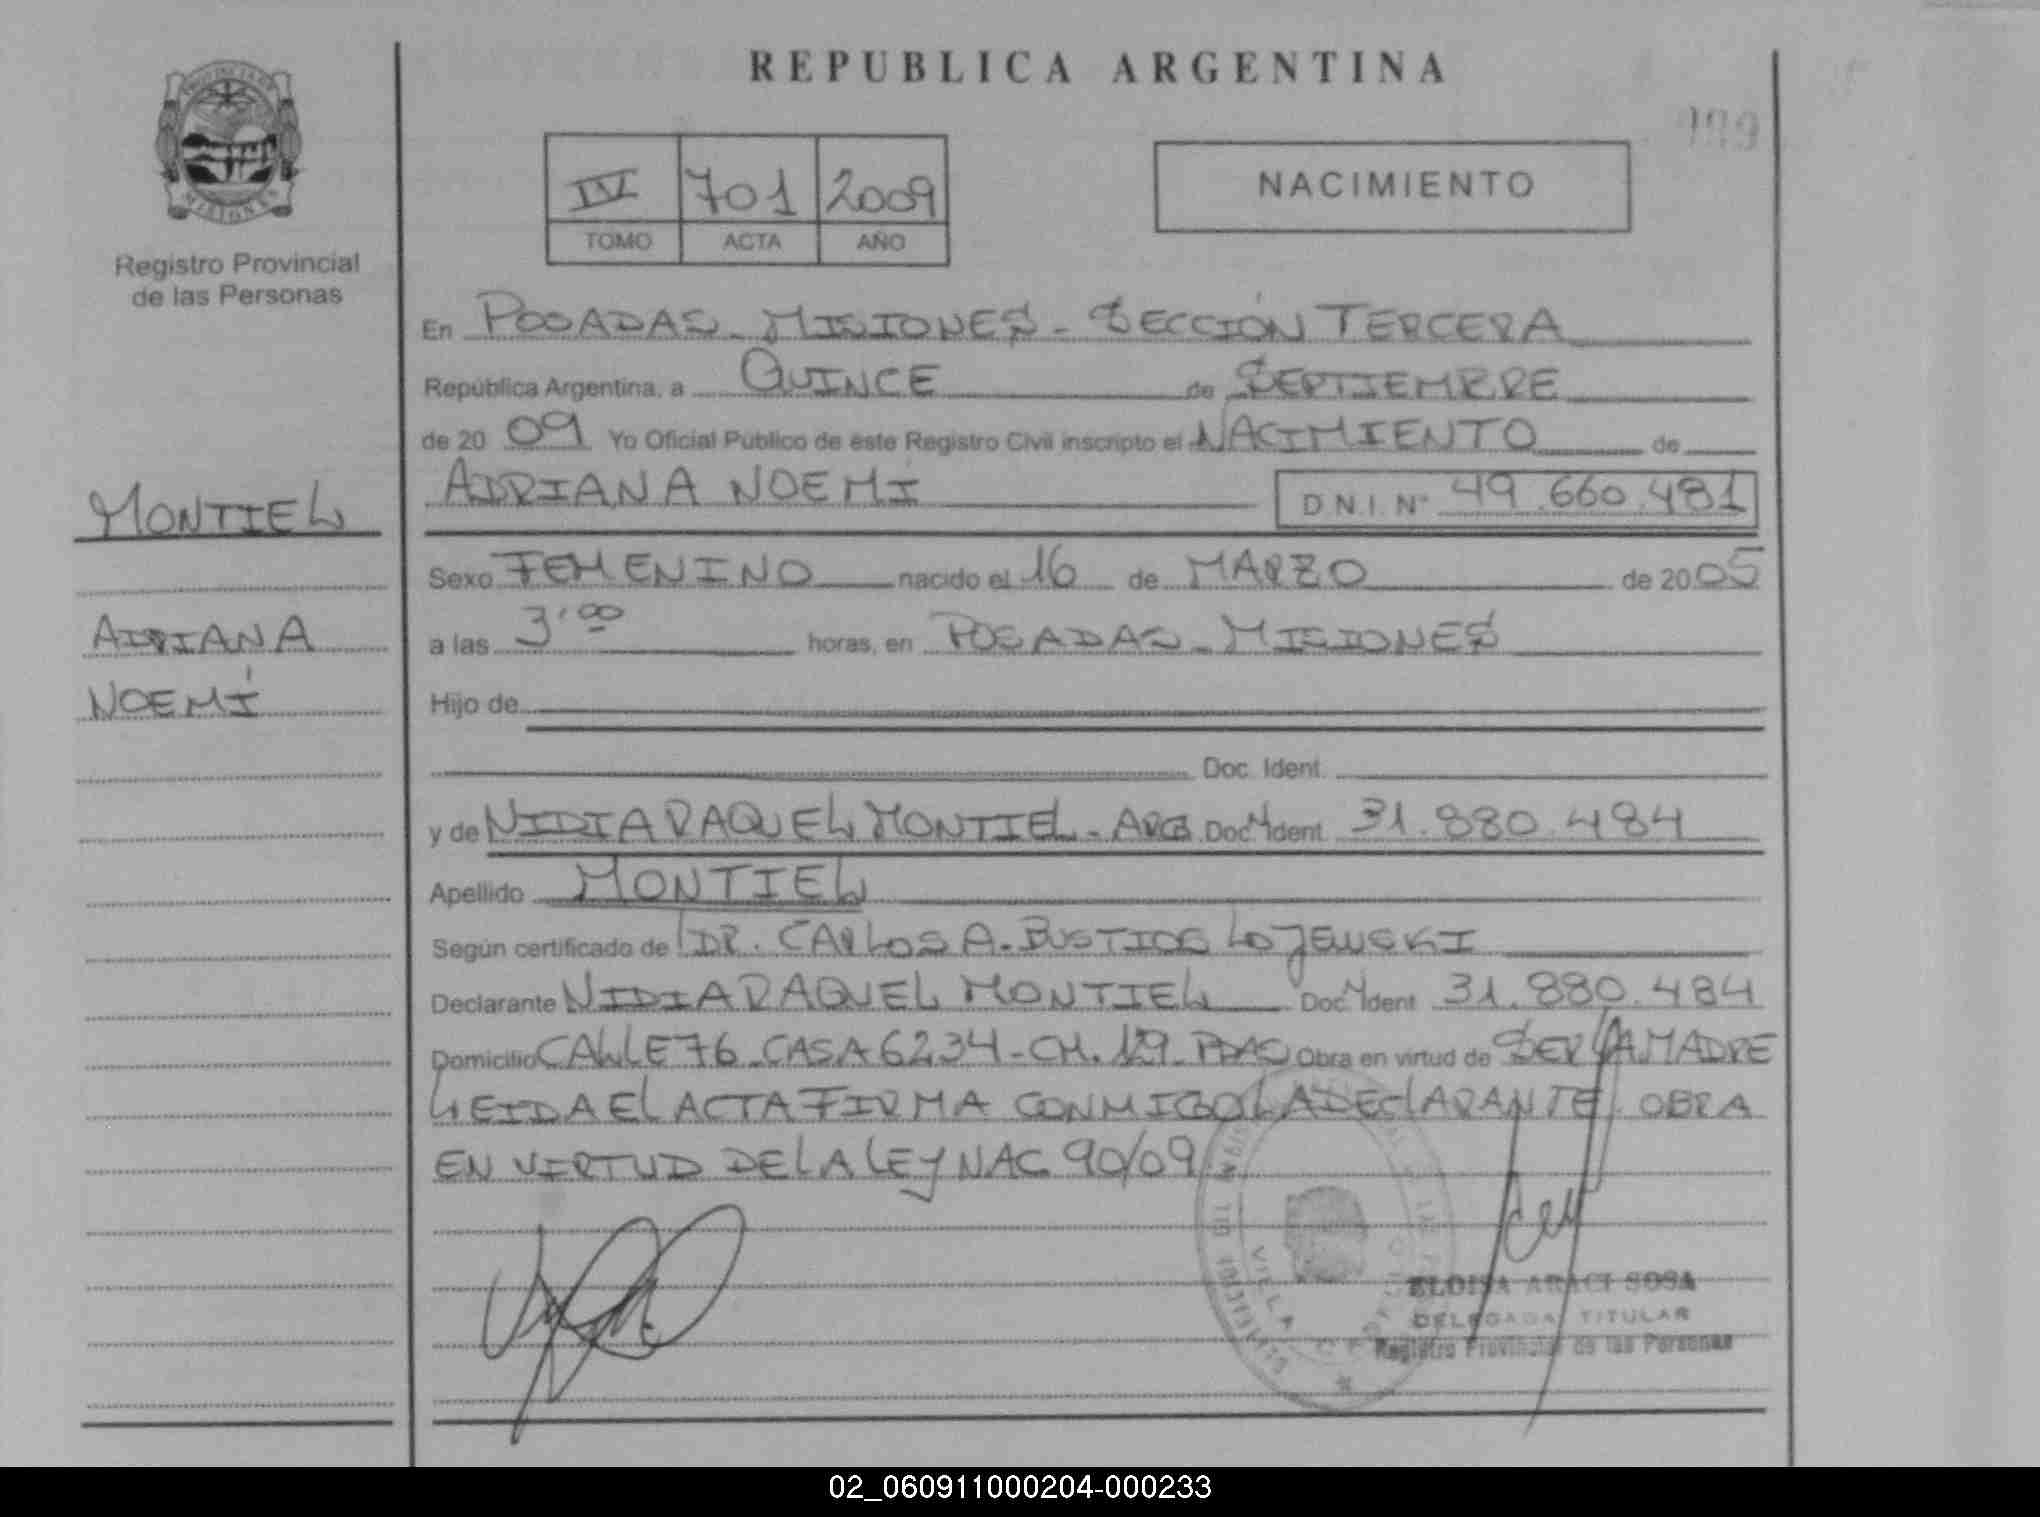 REPUBLICA ARGENTINA
199
IV 701 2009
TOMO ACTA AÑO
NACIMIENTO
PROVINCIA DE
MISIONES
Registro Provincial
de las Personas
MONTIEL
ADRIANA
NOEMÍ
En POSADAS - MISIONES - SECCIÓN TERCERA
República Argentina, a QUINCE de SEPTIEMBRE
de 20 09 Yo Oficial Público de este Registro Civil inscripto el NACIMIENTO de
ADRIANA NOEMÍ D.N.I. N° 49.660.481
Sexo FEMENINO nacido el 16 de MARZO de 20 05
a las 3'00 horas, en POSADAS - MISIONES
Hijo de
Doc. Ident.
y de NIDIA RAQUEL MONTIEL - ARG. Doc. Ident. 31.880.484
Apellido MONTIEL
Según certificado de DR. CARLOS A. BUSTIOS LOJEWSKI
Declarante NIDIA RAQUEL MONTIEL Doc. Ident. 31.880.484
Domicilio CALLE 76 - CASA 6234 - CH. 129 - PDAS Obra en virtud de SER LA MADRE
LEIDA EL ACTA FIRMA CONMIGO LA DECLARANTE, OBRA
EN VIRTUD DE LA LEY NAC 90/09
ELOISA ARACI SOSA
DELEGADA TITULAR
Registro Provincial de las Personas
02_060911000204-000233